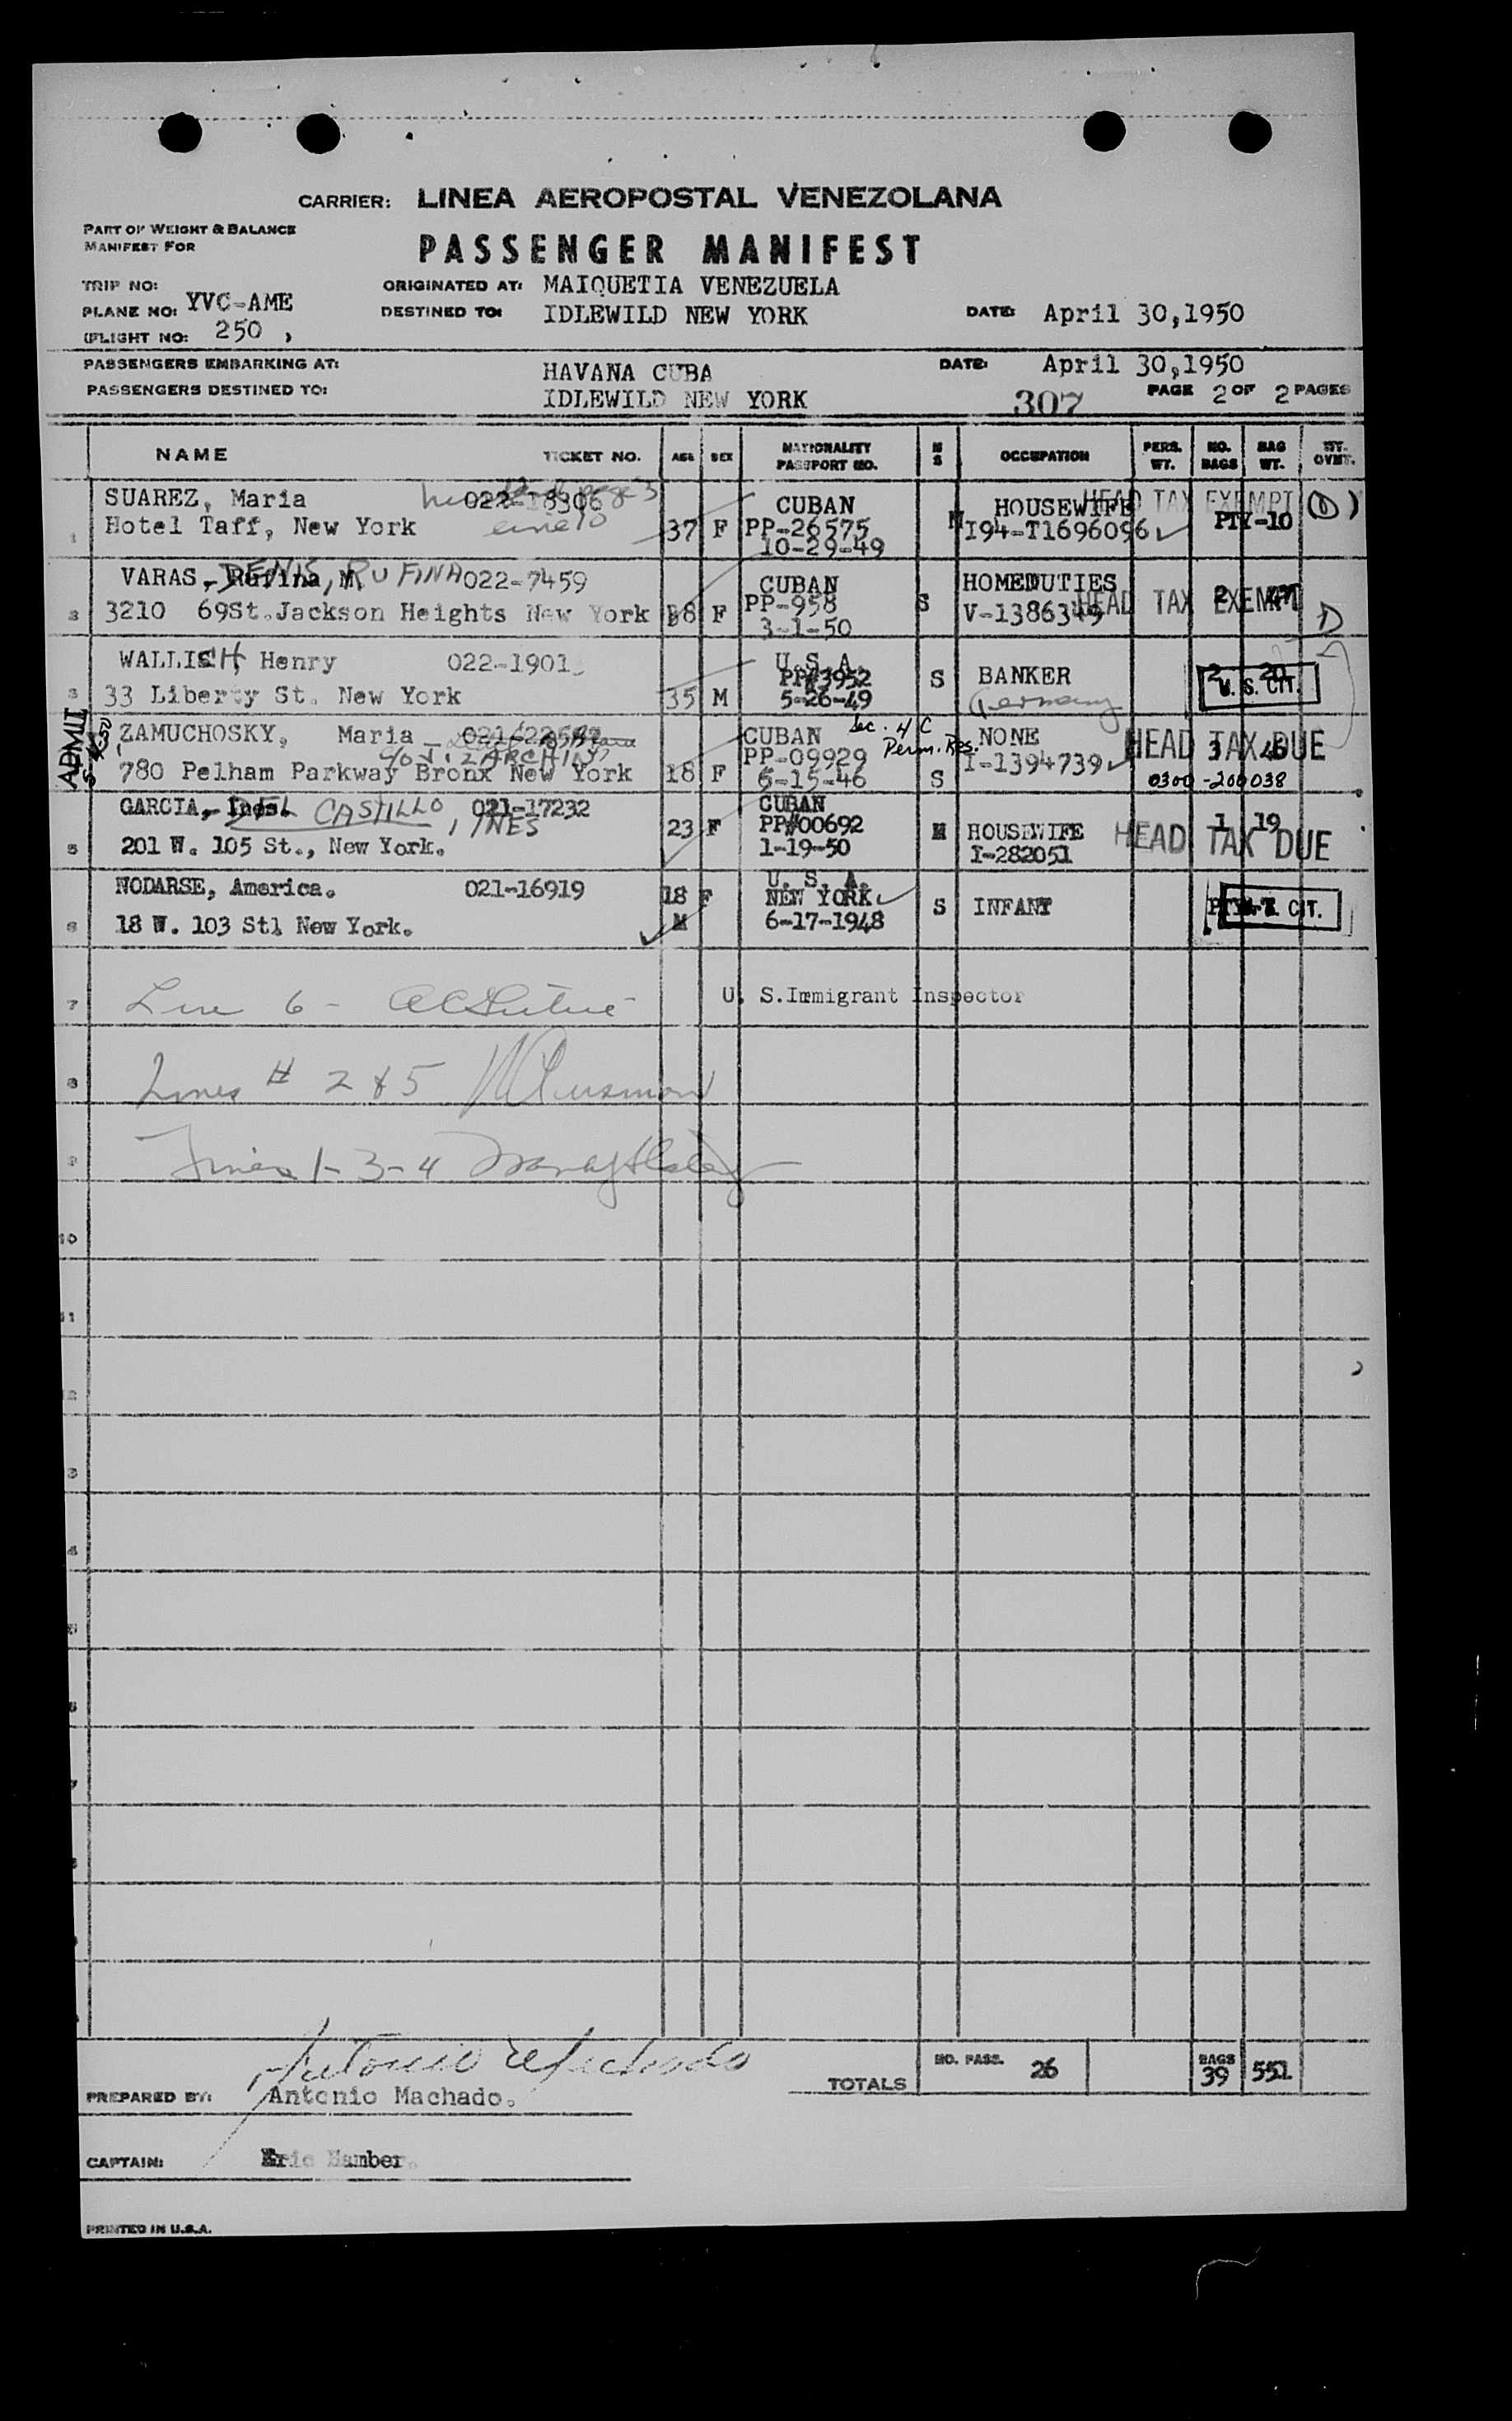 CARRIER: LINEA AEROPOSTAL VENEZOLANA
PART OF WEIGHT & BALANCE
MANIFEST FOR
PASSENGER MANIFEST
TRIP NO:
ORIGINATED AT: MAIQUETIA VENEZUELA
PLANE NO: YVC-AME
DESTINED TO: IDLEWILD NEW YORK
DATE: April 30,1950
FLIGHT NO: 250
PASSENGERS EMBARKING AT: HAVANA CUBA
DATE: April 30,1950
PASSENGERS DESTINED TO: IDLEWILD NEW YORK
307
PAGE 2 OF 2 PAGES
NAME TICKET NO. AGE SEX NATIONALITY PASSPORT NO. M S OCCUPATION PERS. WT. NO. BAGS BAG WT. WT. OVWT.
1 SUAREZ, Maria 022-18306 CUBAN HOUSEWIFE HEAD TAX EXEMPT (D)
Hotel Taff, New York 37 F PP-26575 M I94-T1696096 PTY-10
10-29-49
2 VARAS, Rufina M. DENIS, RUFINA 022-7459 CUBAN HOMEDUTIES
3210 69St.Jackson Heights New York 8 F PP-958 S V-1386349 HEAD TAX EXEMPT 2 D
3-1-50
3 WALLICH, Henry 022-1901 U.S.A.
33 Liberty St. New York 35 M PP#3952 S BANKER 2 20 U. S. CIT.
5-26-49 Germany
ADMIT
4 ZAMUCHOSKY, Maria CUBAN Sec. 4 C Perm. Res. NONE HEAD TAX DUE 3
c/o
780 Pelham Parkway Bronx New York 18 F PP-09929 I-1394739
6-15-46 S 0300 -200038
5 GARCIA, Ines. DEL CASTILLO, INES 021-17232 CUBAN
201 W. 105 St., New York. 23 F PP#00692 M HOUSEWIFE 1 19 HEAD TAX DUE
1-19-50 I-282051
6 NODARSE, America. 021-16919 18 F U. S. A.
18 W. 103 Stl New York. M NEW YORK S INFANT U. S. CIT.
6-17-1948
7 Line 6 - U. S.Immigrant Inspector
8 Lines # 2 & 5
9 Lines 1-3-4
10
11
TOTALS NO. PASS. 26 BAGS 39 551
PREPARED BY: Antonio Machado.
CAPTAIN: Eric Hamber.
PRINTED IN U.S.A.